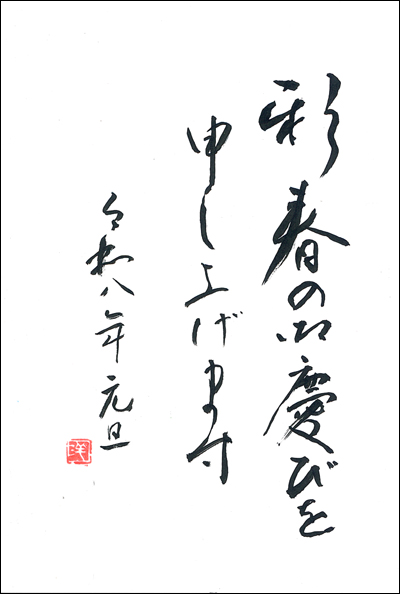 彩春の御慶びを
申し上げます
令和八年元旦